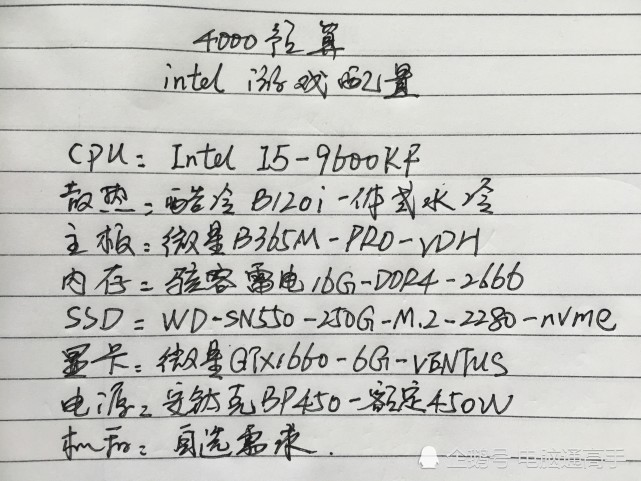 4000预算
intel 游戏配置
CPU: Intel I5-9600KF
散热: 酷冷B120i一体式水冷
主板: 微星B365M-PRO-VDH
内存: 骇客雷电16G-DDR4-2666
SSD: WD-SN550-250G-M.2-2280-nvme
显卡: 微星GTX1660-6G-VENTUS
电源: 安钛克BP450-额定450W
机箱: 自选需求.
企鹅号 电脑通高手